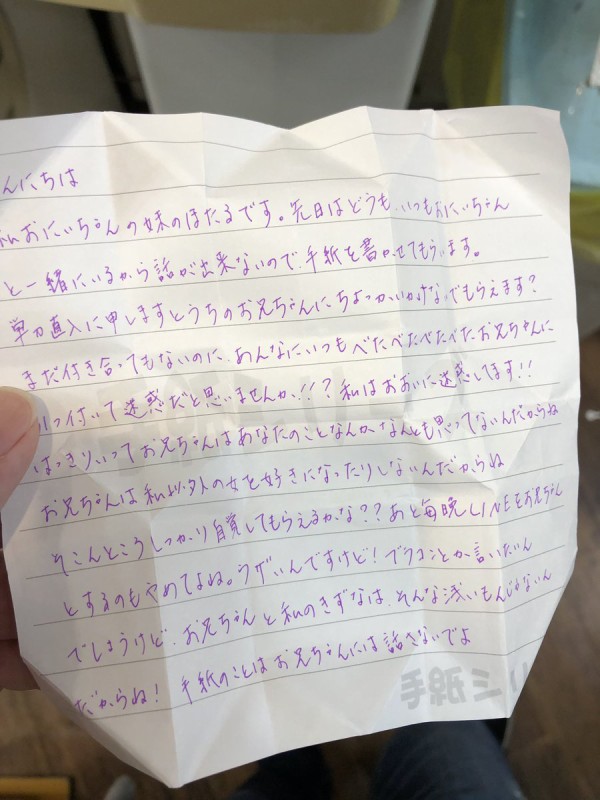 んにちは
私おにいちゃんの妹のほたるです。先日はどうも、いつもおにいちゃん
と一緒にいるから話が出来ないので、手紙を書かせてもらいます。
単刀直入に申しますとうちのお兄ちゃんにちょっかいかけないでもらえます？
まだ付き合ってもないのに、あんなにいつもべたべたべたべたお兄ちゃんに
っ付いて迷惑だと思いませんか！！？私はおおいに迷惑してます！！
はっきりいってお兄ちゃんはあなたのことなんかなんとも思ってないんだからね
お兄ちゃんは私以外の女を好きになったりしないんだからね
そこんところしっかり自覚してもらえるかな？？あと毎晩LINEをお兄ちゃん
とするのもやめてよね。うざいんですけど！ブラコンとか言いたいん
でしょうけど、お兄ちゃんと私のきずなは、そんな浅いもんじゃないん
だからね！手紙のことはお兄ちゃんには話さないでよ
ミリ手紙